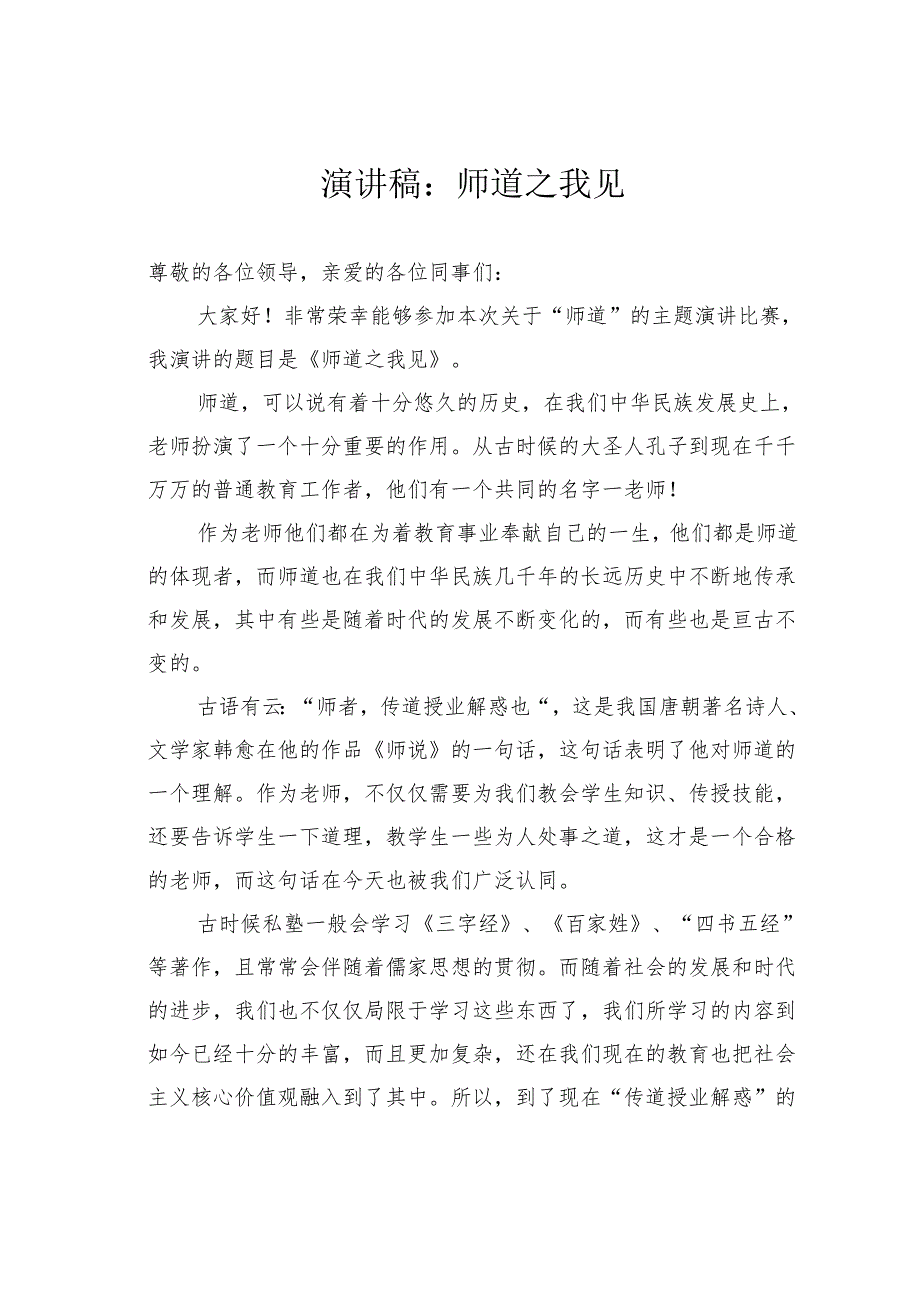 演讲稿：师道之我见
尊敬的各位领导，亲爱的各位同事们：
大家好！非常荣幸能够参加本次关于“师道”的主题演讲比赛，
我演讲的题目是《师道之我见》。
师道，可以说有着十分悠久的历史，在我们中华民族发展史上，
老师扮演了一个十分重要的作用。从古时候的大圣人孔子到现在千千
万万的普通教育工作者，他们有一个共同的名字一老师！
作为老师他们都在为着教育事业奉献自己的一生，他们都是师道
的体现者，而师道也在我们中华民族几千年的长远历史中不断地传承
和发展，其中有些是随着时代的发展不断变化的，而有些也是亘古不
变的。
古语有云：“师者，传道授业解惑也“，这是我国唐朝著名诗人、
文学家韩愈在他的作品《师说》的一句话，这句话表明了他对师道的
一个理解。作为老师，不仅仅需要为我们教会学生知识、传授技能，
还要告诉学生一下道理，教学生一些为人处事之道，这才是一个合格
的老师，而这句话在今天也被我们广泛认同。
古时候私塾一般会学习《三字经》、《百家姓》、“四书五经”
等著作，且常常会伴随着儒家思想的贯彻。而随着社会的发展和时代
的进步，我们也不仅仅局限于学习这些东西了，我们所学习的内容到
如今已经十分的丰富，而且更加复杂，还在我们现在的教育也把社会
主义核心价值观融入到了其中。所以，到了现在“传道授业解惑”的